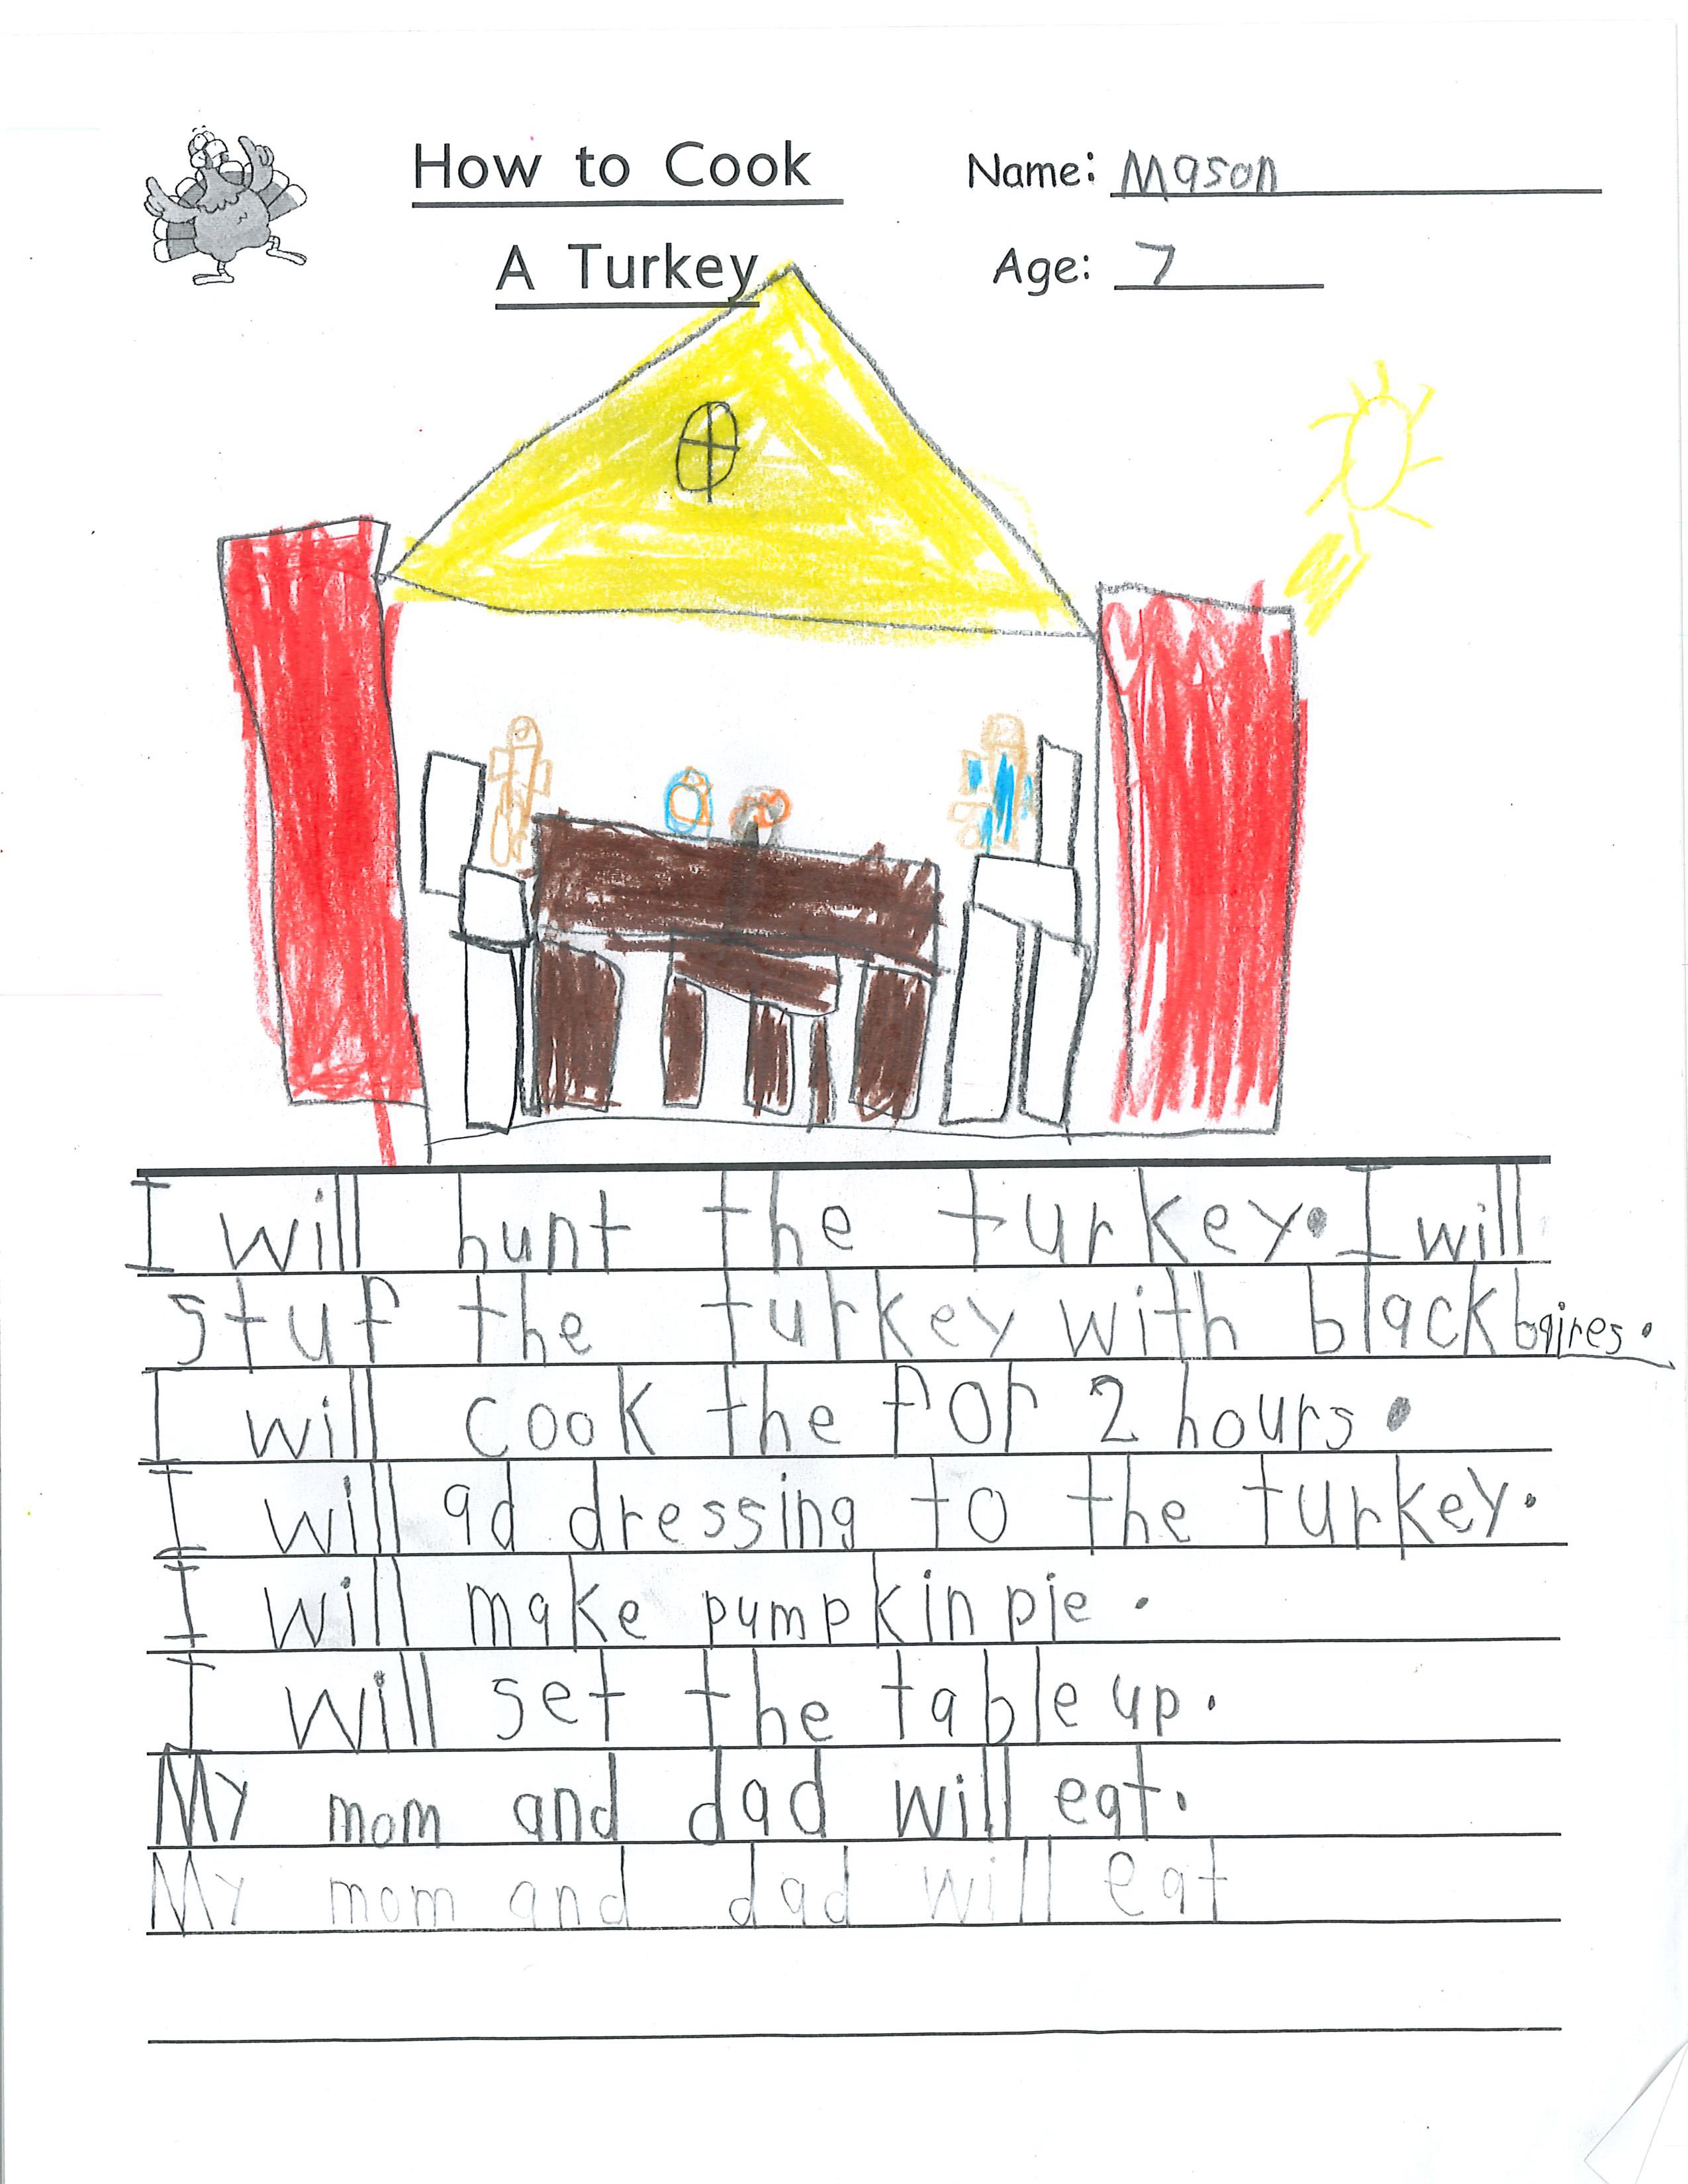 How to Cook
A Turkey
Name: Mason
Age: 7
I will hunt the turkey. I will
stuf the turkey with blackbaires.
I will cook the for 2 hours.
I will ad dressing to the turkey.
I will make pumpkin pie.
I will set the table up.
My mom and dad will eat.
My mom and dad will eat